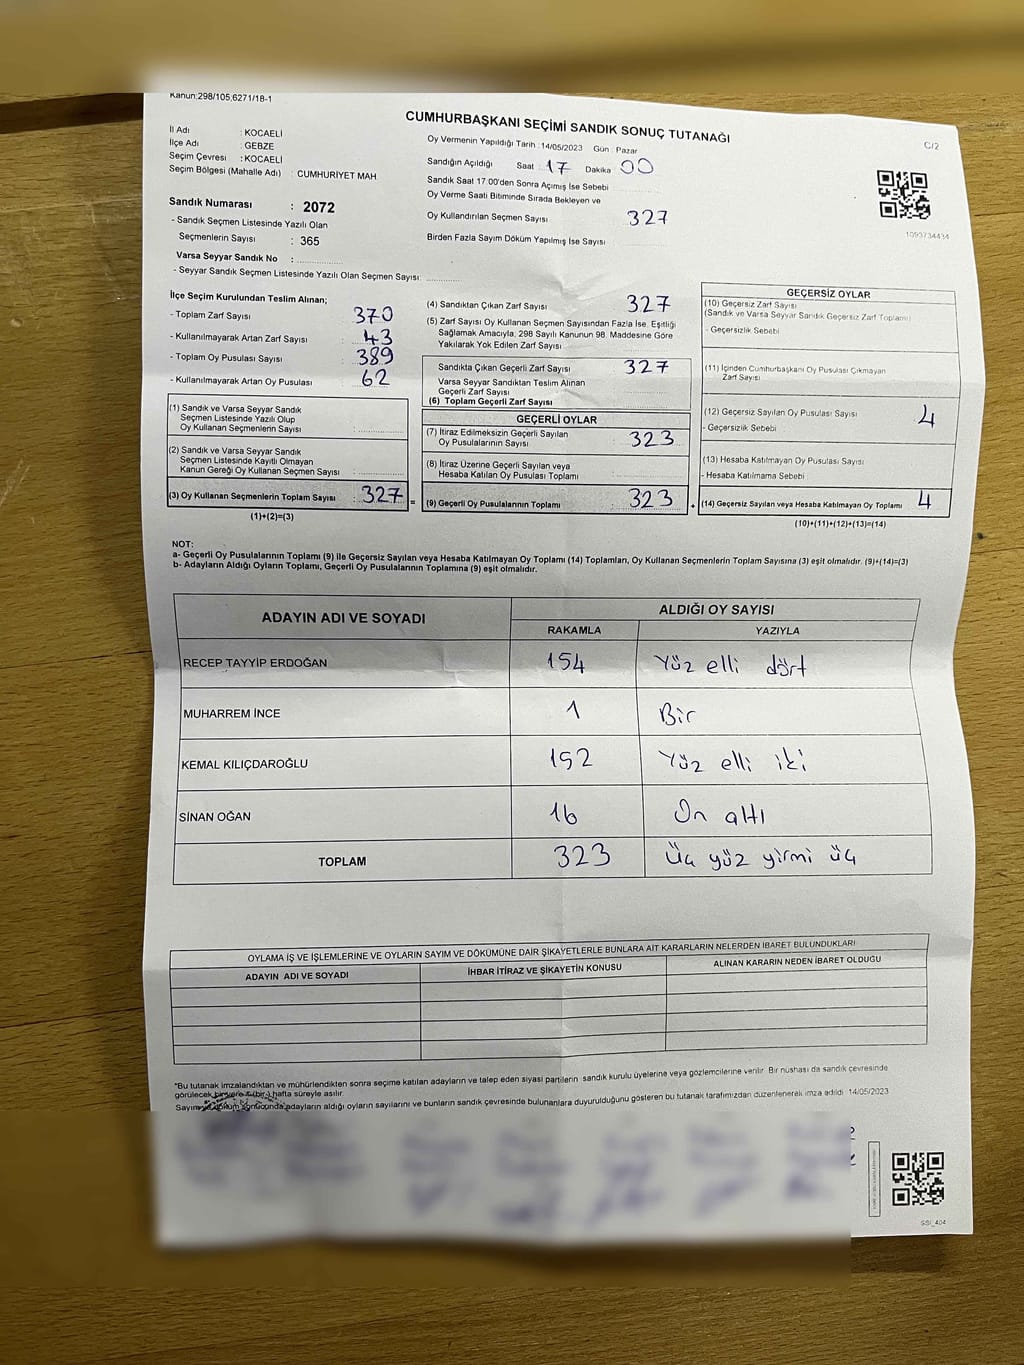 Kanun:298/105,6271/18-1
CUMHURBAŞKANI SEÇİMİ SANDIK SONUÇ TUTANAĞI
C/2
İl Adı : KOCAELİ
İlçe Adı : GEBZE
Seçim Çevresi : KOCAELİ
Seçim Bölgesi (Mahalle Adı) : CUMHURİYET MAH
Sandık Numarası : 2072
- Sandık Seçmen Listesinde Yazılı Olan
Seçmenlerin Sayısı : 365
Varsa Seyyar Sandık No :
- Seyyar Sandık Seçmen Listesinde Yazılı Olan Seçmen Sayısı:
Oy Vermenin Yapıldığı Tarih :14/05/2023 Gün : Pazar
Sandığın Açıldığı Saat 17 Dakika 00
Sandık Saat 17:00'den Sonra Açımış İse Sebebi
Oy Verme Saati Bitiminde Sırada Bekleyen ve
Oy Kullandırılan Seçmen Sayısı 327
Birden Fazla Sayım Döküm Yapılmış İse Sayısı
1093734434
İlçe Seçim Kurulundan Teslim Alınan;
- Toplam Zarf Sayısı 370
- Kullanılmayarak Artan Zarf Sayısı : 43
- Toplam Oy Pusulası Sayısı : 389
- Kullanılmayarak Artan Oy Pusulası : 62
(1) Sandık ve Varsa Seyyar Sandık
Seçmen Listesinde Yazılı Olup
Oy Kullanan Seçmenlerin Sayısı :
(2) Sandık ve Varsa Seyyar Sandık
Seçmen Listesinde Kayıtlı Olmayan
Kanun Gereği Oy Kullanan Seçmen Sayısı :
(3) Oy Kullanan Seçmenlerin Toplam Sayısı : 327 =
(1)+(2)=(3)
(4) Sandıktan Çıkan Zarf Sayısı 327
(5) Zarf Sayısı Oy Kullanan Seçmen Sayısından Fazla İse, Eşitliği
Sağlamak Amacıyla; 298 Sayılı Kanunun 98. Maddesine Göre
Yakılarak Yok Edilen Zarf Sayısı
Sandıkta Çıkan Geçerli Zarf Sayısı 327
Varsa Seyyar Sandıktan Teslim Alınan
Geçerli Zarf Sayısı
(6) Toplam Geçerli Zarf Sayısı
GEÇERLİ OYLAR
(7) İtiraz Edilmeksizin Geçerli Sayılan
Oy Pusulalarının Sayısı 323
(8) İtiraz Üzerine Geçerli Sayılan veya
Hesaba Katılan Oy Pusulası Toplamı
(9) Geçerli Oy Pusulalarının Toplamı 323
GEÇERSİZ OYLAR
(10) Geçersiz Zarf Sayısı
(Sandık ve Varsa Seyyar Sandık Geçersiz Zarf Toplamı)
- Geçersizlik Sebebi
(11) İçinden Cumhurbaşkanı Oy Pusulası Çıkmayan
Zarf Sayısı
(12) Geçersiz Sayılan Oy Pusulası Sayısı 4
- Geçersizlik Sebebi
(13) Hesaba Katılmayan Oy Pusulası Sayısı
- Hesaba Katılmama Sebebi
(14) Geçersiz Sayılan veya Hesaba Katılmayan Oy Toplamı 4
(10)+(11)+(12)+(13)=(14)
NOT:
a- Geçerli Oy Pusulalarının Toplamı (9) ile Geçersiz Sayılan veya Hesaba Katılmayan Oy Toplamı (14) Toplamları, Oy Kullanan Seçmenlerin Toplam Sayısına (3) eşit olmalıdır. (9)+(14)=(3)
b- Adayların Aldığı Oyların Toplamı, Geçerli Oy Pusulalarının Toplamına (9) eşit olmalıdır.
ADAYIN ADI VE SOYADI ALDIĞI OY SAYISI
RAKAMLA YAZIYLA
RECEP TAYYİP ERDOĞAN 154 Yüz elli dört
MUHARREM İNCE 1 Bir
KEMAL KILIÇDAROĞLU 152 Yüz elli iki
SİNAN OĞAN 16 On altı
TOPLAM 323 Üç yüz yirmi üç
OYLAMA İŞ VE İŞLEMLERİNE VE OYLARIN SAYIM VE DÖKÜMÜNE DAİR ŞİKAYETLERLE BUNLARA AİT KARARLARIN NELERDEN İBARET BULUNDUKLARI
ADAYIN ADI VE SOYADI İHBAR İTİRAZ VE ŞİKAYETİN KONUSU ALINAN KARARIN NEDEN İBARET OLDUĞU
*Bu tutanak imzalandıktan ve mühürlendikten sonra seçime katılan adayların ve talep eden siyasi partilerin sandık kurulu üyelerine veya gözlemcilerine verilir. Bir nüshası da sandık çevresinde
görülecek bir yere 1 (bir) hafta süreyle asılır.
Sayım ve döküm sonucunda adayların aldığı oyların sayılarını ve bunların sandık çevresinde bulunanlara duyurulduğunu gösteren bu tutanak tarafımızdan düzenlenerek imza edildi. 14/05/2023
SSI_404